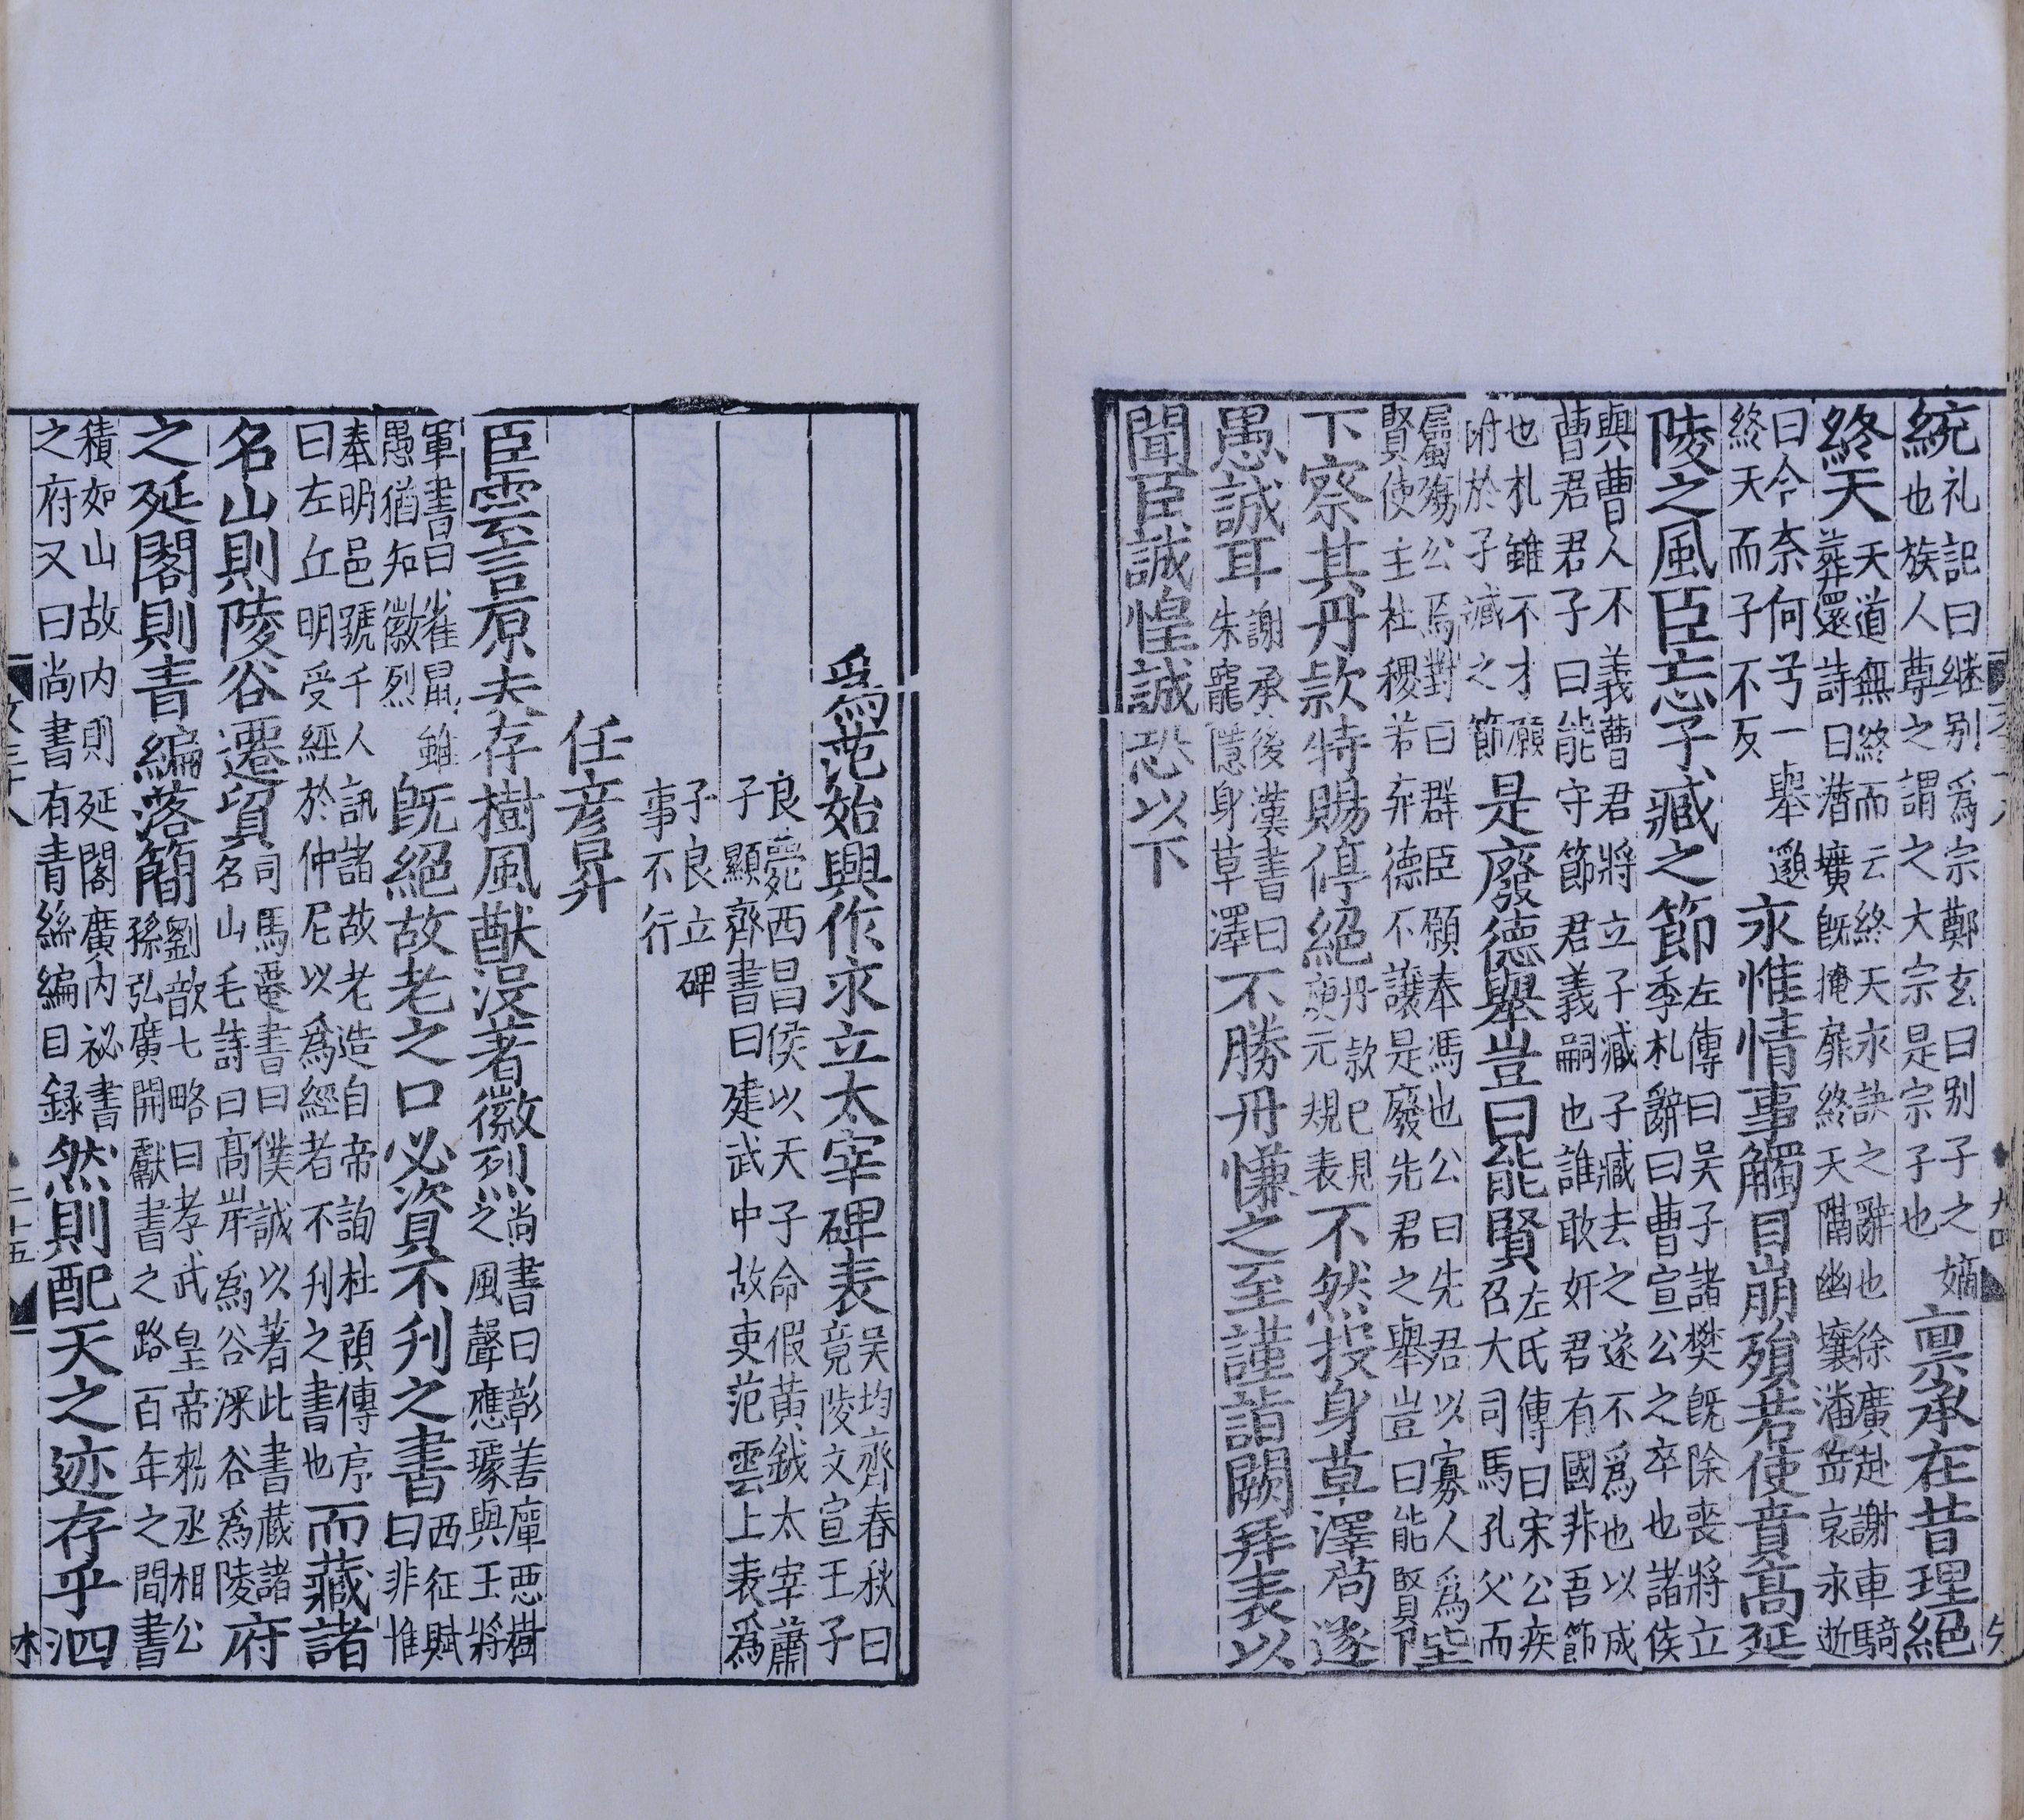 統礼記曰継别為宗鄭玄曰别子之嫡也族人尊之謂之大宗是宗子也禀承在昔理絕
終天天道無終而云終天永訣之辭也徐廣赴謝車騎葬還詩曰潛壙既掩扉終天隔幽壤潘岳哀永逝
曰今奈何兮一舉邈終天而子不反永惟情事觸目崩殞若使賁高延
陵之風臣忘子臧之節左傳曰吳子諸樊既除喪將立季札辭曰曹宣公之卒也諸侯
與曹人不義曹君將立子臧子臧去之遂不爲也以成曹君君子曰能守節君義嗣也誰敢奸君有國非吾節
也札雖不才願附於子臧之節是廢德舉豈曰能賢左氏傳曰宋公疾召大司馬孔父而
屬殤公焉對曰群臣願奉馮也公曰先君以寡人爲賢使主社稷若弃德不讓是廢先君之舉豈曰能賢陛
下察其丹款特賜停絕丹款已見庾元規表不然投身草澤苟遂
愚誠耳謝承後漢書曰朱寵隱身草澤不勝丹慊之至謹詣闕拜表以
聞臣誠惶誠恐以下
爲范始興作求立太宰碑表吳均齊春秋曰竟陵文宣王子
良薨西昌侯以天子命假黃鉞太宰蕭子顯齊書曰建武中故吏范雲上表爲
子良立碑事不行
任彦昇
臣雲言原夫存樹風猷没著徽烈尚書曰彰善癉惡樹之風聲應璩與王將
軍書曰雀鼠雖愚猶知徽烈既絕故老之口必資不刋之書西征賦曰非惟
奉明邑號千人訊諸故老造自帝詢杜預傳序曰左丘明受經於仲尼以爲經者不刋之書也而藏諸
名山則陵谷遷貿司馬遷書曰僕誠以著此書藏諸名山毛詩曰高岸爲谷深谷爲陵府
之延閣則青編落簡劉歆七略曰孝武皇帝勑丞相公孫弘廣開獻書之路百年之間書
積如山故内則延閣廣内祕書之府又曰尚書有青絲編目録然則配天之迹存乎泗